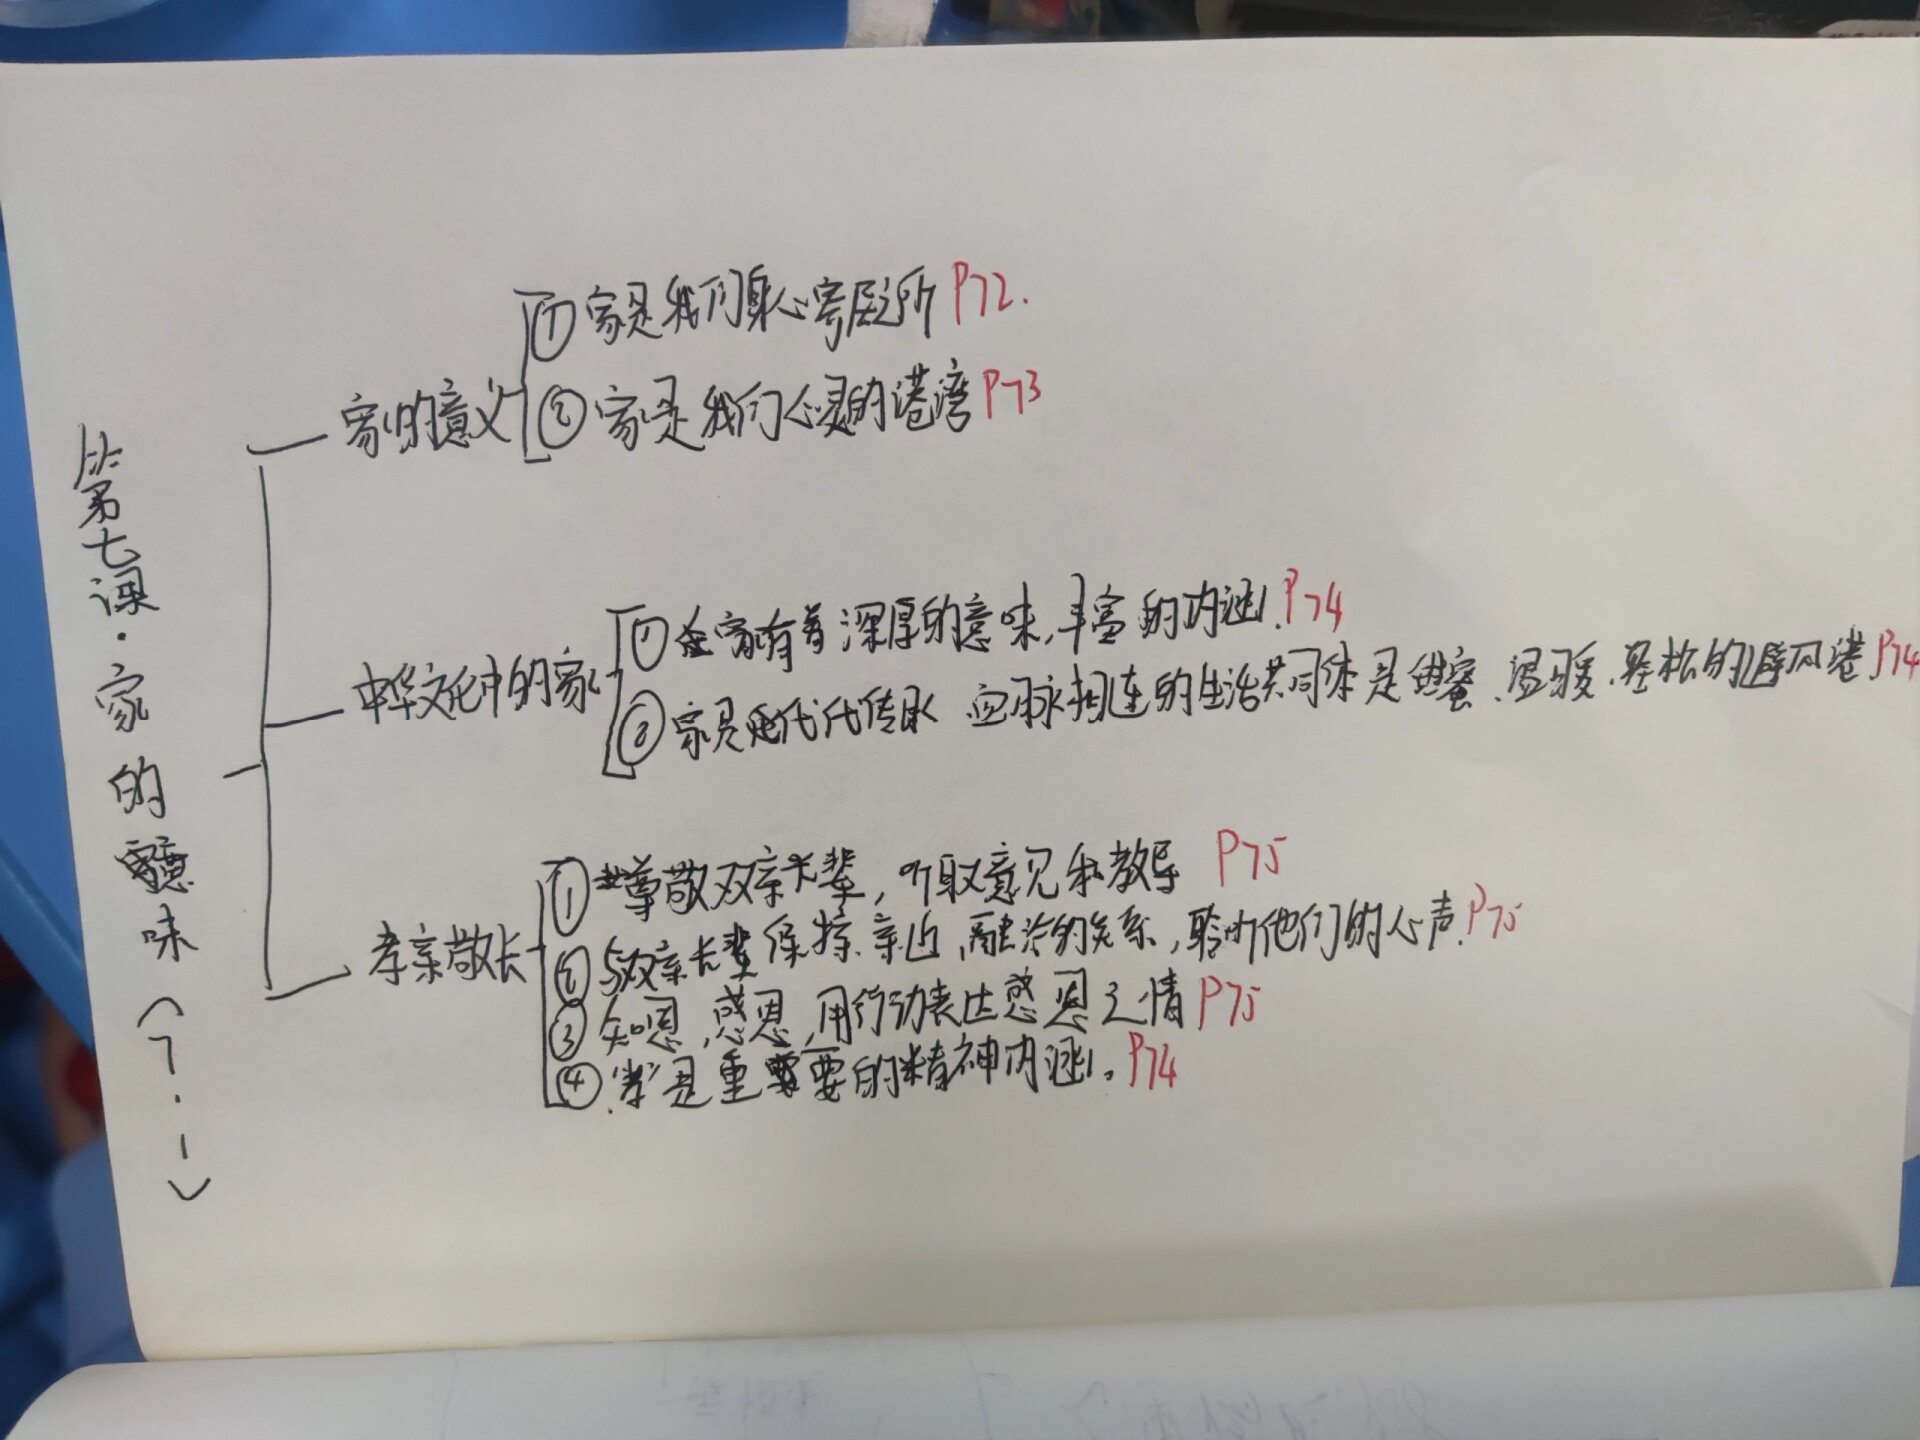 第七课·家的意味（7.1）
家的意义
①家是我们身心寄居之所 P72.
②家是我们心灵的港湾 P73
中华文化中的家
①家有着深厚的意味,丰富的内涵. P74
②家是代代传承 血脉相连的生活共同体是甜蜜、温暖、轻松的避风港 P74
孝亲敬长
①尊敬双亲长辈，听取意见和教导 P75
②与双亲长辈保持亲近、融洽的关系，聆听他们的心声. P75
③知恩、感恩,用行动表达感恩之情 P75
④.“孝”是重要的精神内涵。P74